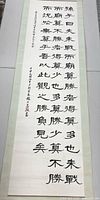 孫子曰夫未戰而廟算勝者得算多也未戰
而廟算不勝者得算少也多算勝少算不勝
而況於無算乎吾以此觀之勝負見矣